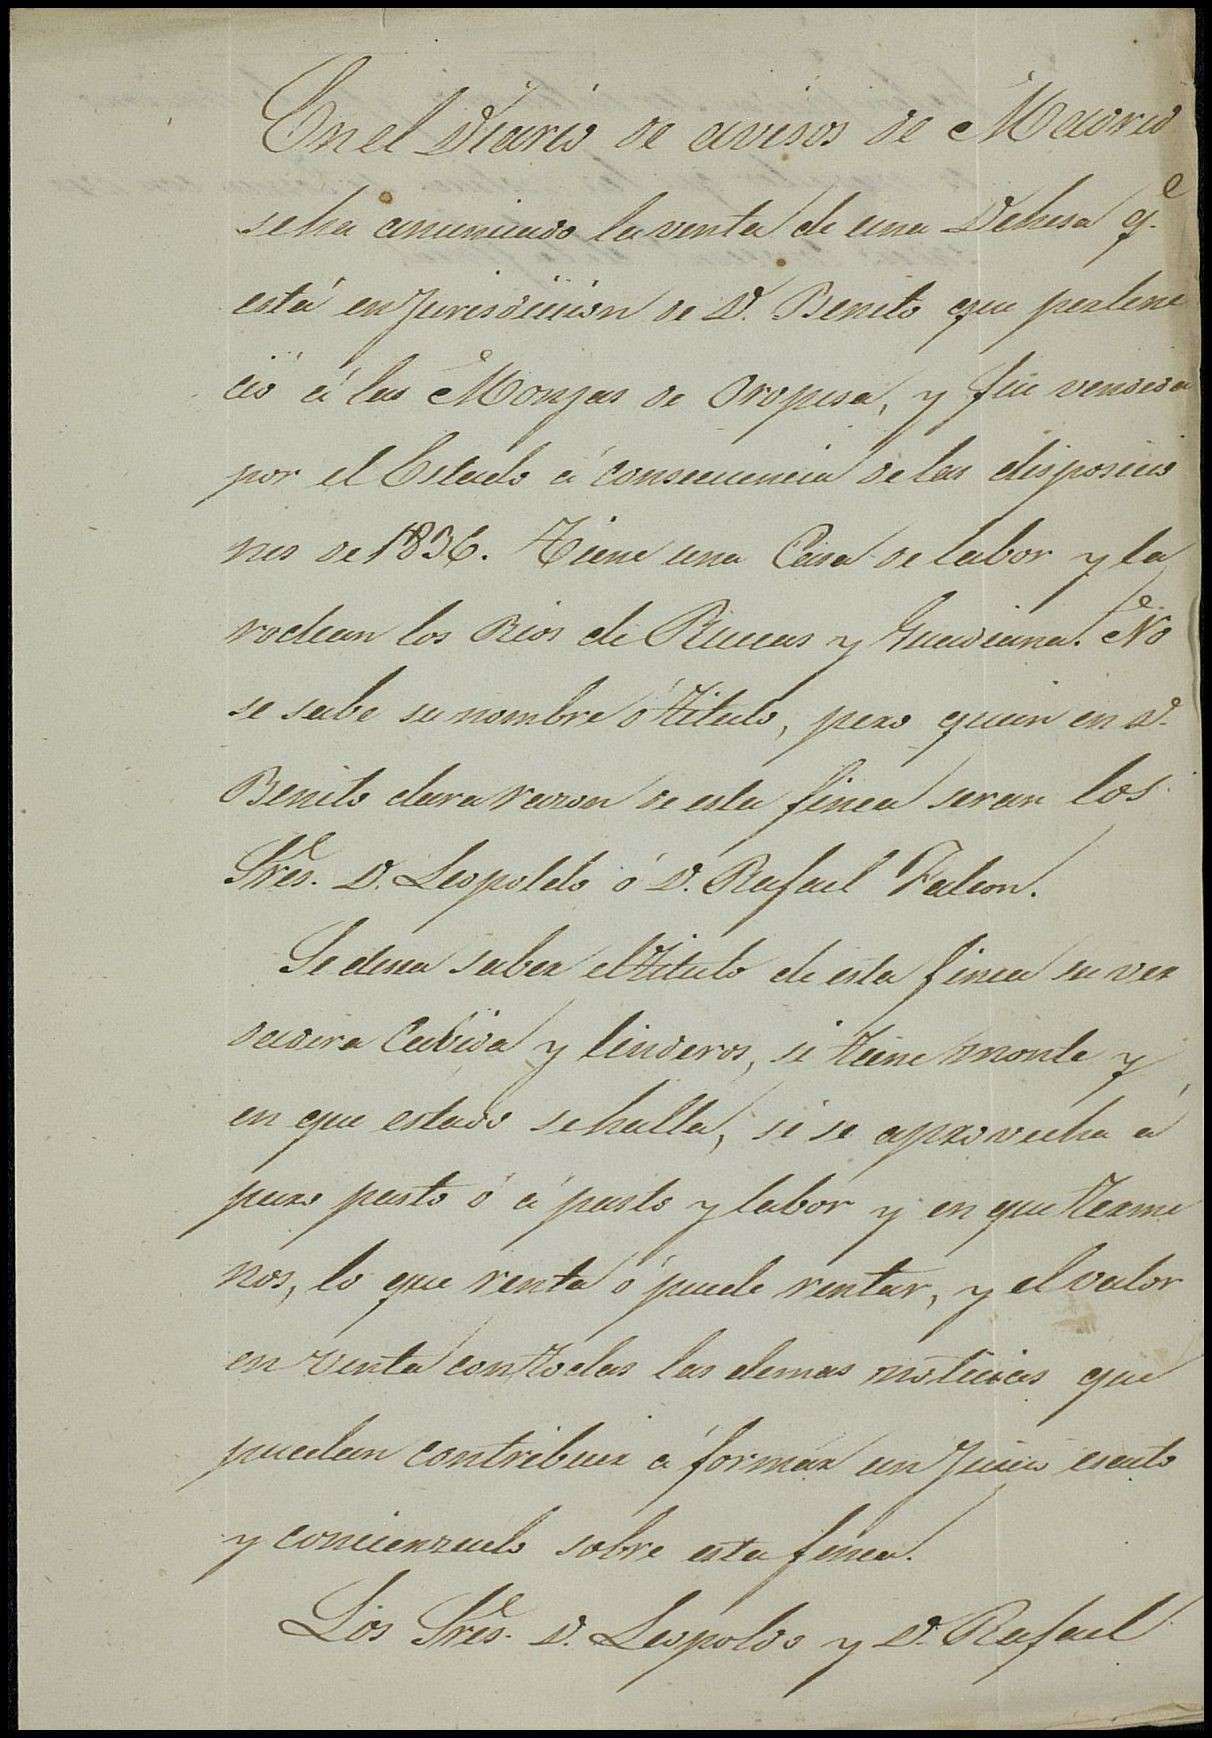 En el Diario de avisos de Madrid
se ha anunciado la venta de una Dehesa q.e
está en Jurisdiccion de D. Benito que pertene
ció á las Monjas de Oropesa, y fue vendida
por el Estado á consecuencia de las disposicio
nes de 1836. Tiene una Casa de labor y la
rodean los Rios de Ruecas y Guadiana. No
se sabe su nombre ó titulo, pero quien en D.
Benito dara razon de esta finca seran los
Sres. D. Leopoldo ó D. Rafael Falcon.
Se desea saber el titulo de esta finca su ver
dadera Cabida y linderos, si tiene monte y
en que estado se halla, si se aprovecha á
puro pasto ó á pasto y labor y en que termi
nos, lo que renta ó puede rentar, y el valor
en venta con todas las demas noticias que
puedan contribuir á formar un Juicio esacto
y concienzudo sobre esta finca.
Los Sres. D. Leopoldo y D. Rafael